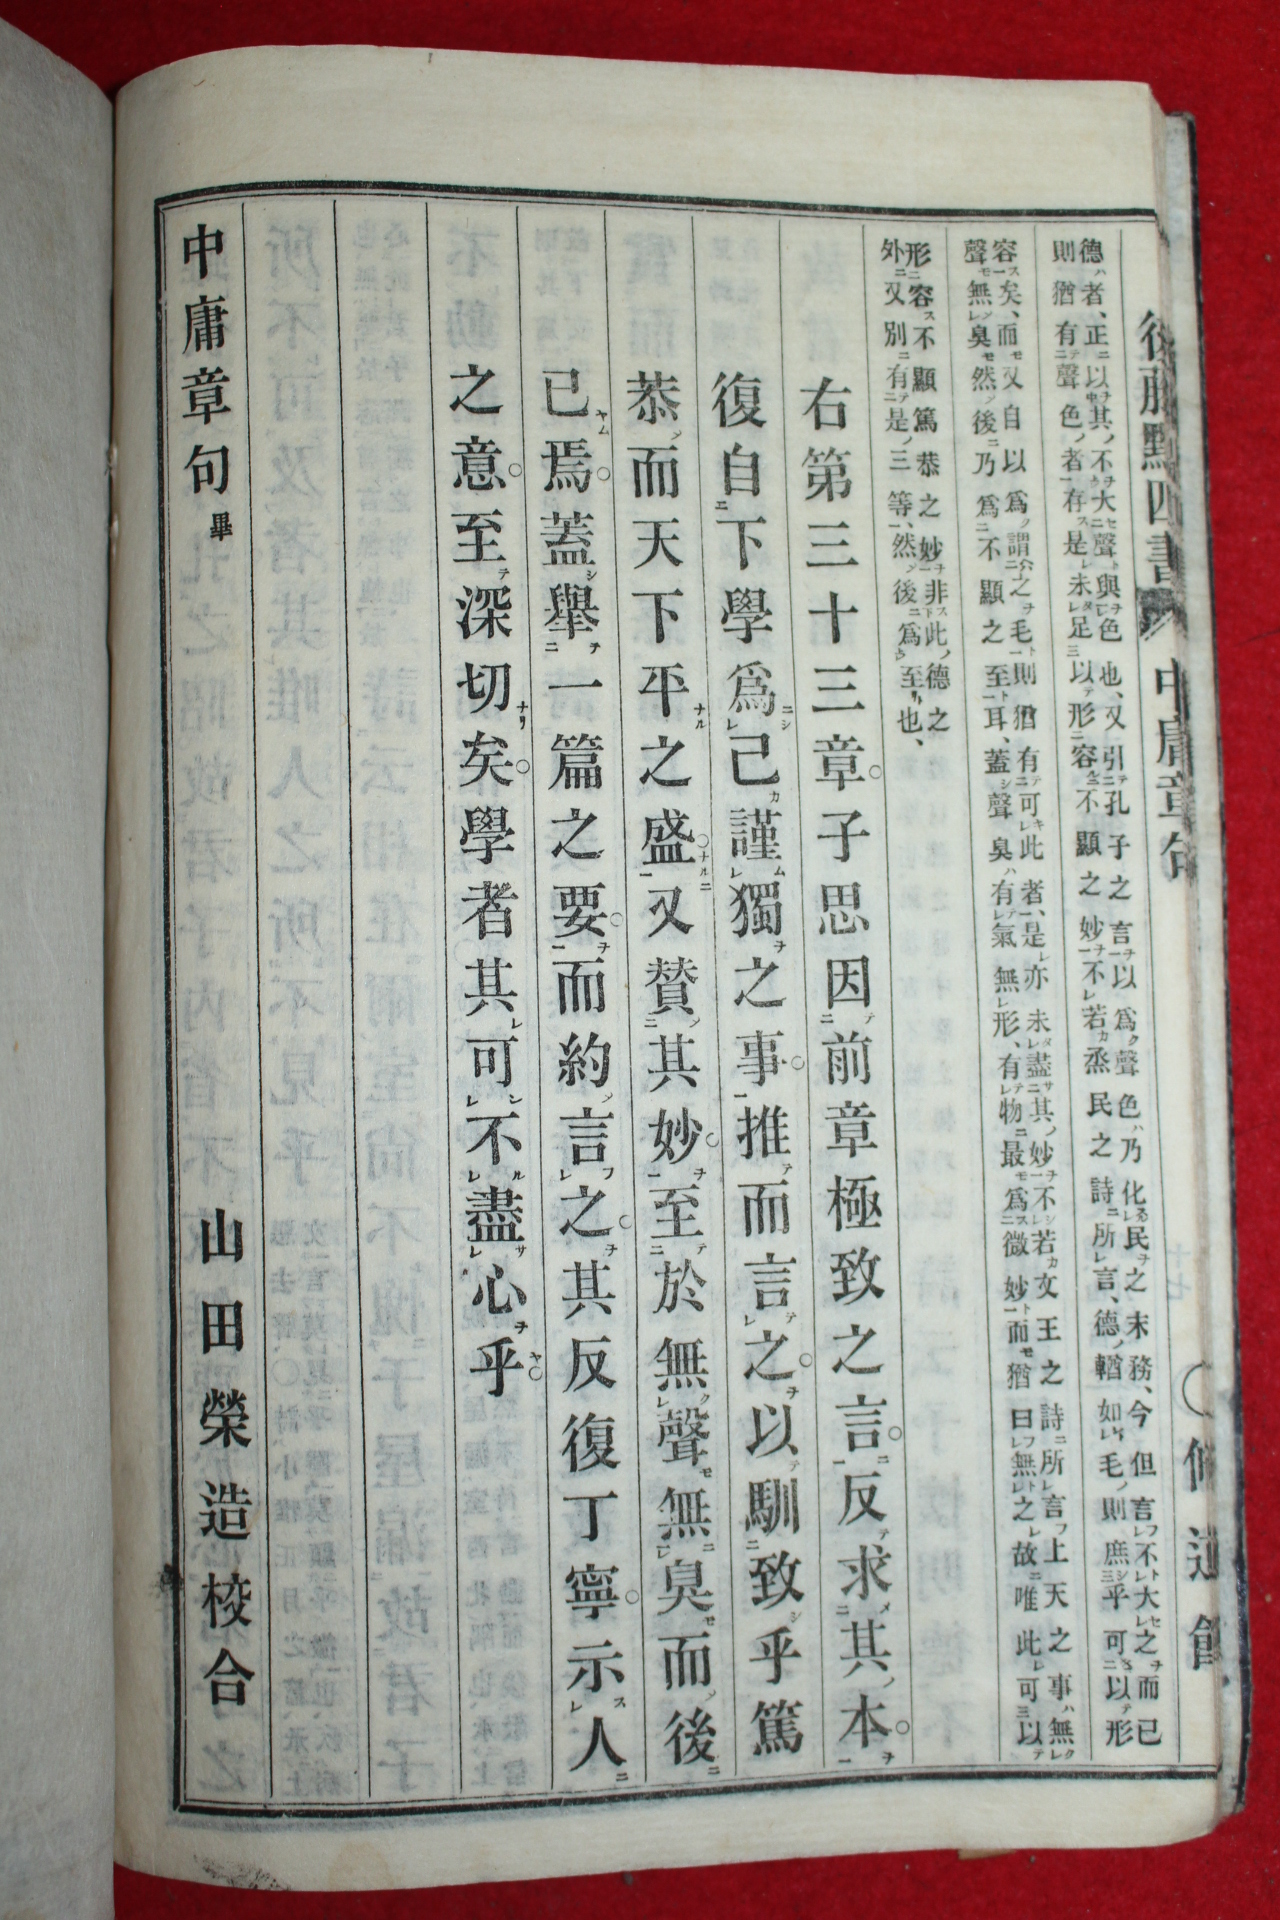 後藤點四書 中庸章句 ○修道館
德者、正以其不大聲與色也、又引孔子之言以爲聲色乃化民之末務、今但言不大之而已
則猶有聲色者存是未足以形容不顯之妙不若烝民之詩所言、德輶如毛、則庶乎可以形
容矣、而又自以爲謂之毛則猶有可此者、是亦未盡其妙不若文王之詩所言上天之事無
聲無臭然後乃爲不顯之至耳、蓋聲臭有氣無形、有物最爲微妙而猶曰無之故唯此可以
形容不顯篤恭之妙非此德之
外又別有是三等、然後爲至也、
右第三十三章○子思因前章極致之言○反求其本○
復自下學爲己謹獨之事○推而言之○以馴致乎篤
恭而天下平之盛○又贊其妙○至於無聲無臭而後
已焉○蓋舉一篇之要○而約言之○其反復丁寧○示人
之意○至深切矣○學者其可不盡心乎○
中庸章句畢 山田榮造校合